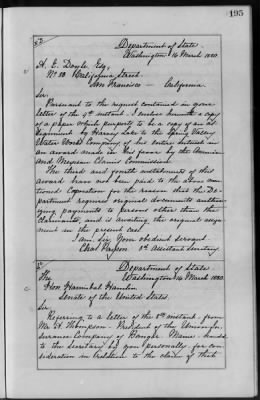 195
Department of State
Washington 16 March 1880.
A. E. Doyle, Esq.
No 38 California Street,
San Francisco – California.
Sir,
Pursuant to the request contained in your
letter of the 9th instant, I enclose herewith a copy
of a paper which purports to be a copy of an as-
signment by Harvey Lake to the Spring Valley
Water Works Company of his entire interest in
an award made in his favor by the American
and Mexican Claims Commission.
The third and fourth instalments of this
award have not been paid to the above men-
tioned Corporation for the reason that this De-
partment requires original documents author-
izing payments to persons other than the
Claimants, and is awaiting the original assign-
ment in the present case.
I am, Sir, Your obedient servant
Chas Payson
3d Assistant Secretary.
Department of State
Washington, 16 March 1880.
The
Hon. Hannibal Hamlin
Senate of the United States.
Sir,
Referring to a letter of the 8th instant, from
Mr. Thompson, President of the Union In-
surance Company of Bangor, Maine, hand-
to the Secretary by you personally, for con-
sideration in relation to the claim of that